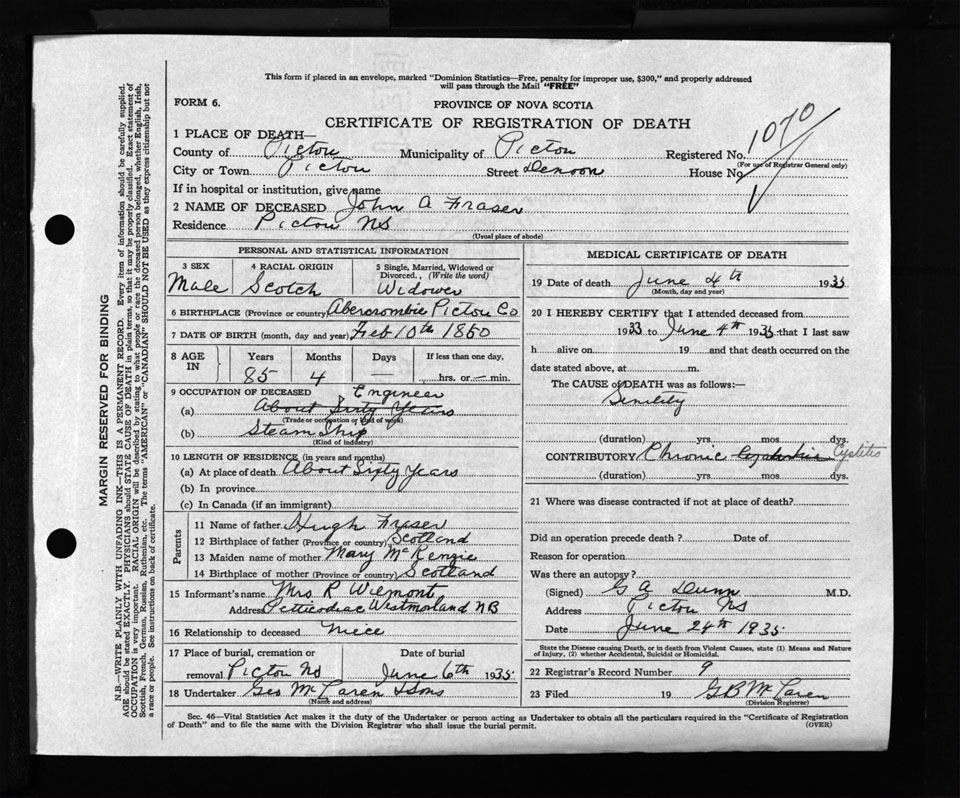 This form if placed in an envelope, marked "Dominion Statistics—Free, penalty for improper use, $300," and properly addressed
will pass through the Mail "FREE"
FORM 6.
PROVINCE OF NOVA SCOTIA
CERTIFICATE OF REGISTRATION OF DEATH
1 PLACE OF DEATH—
County of Pictou Municipality of Pictou Registered No. 1070
(For use of Registrar General only)
City or Town Pictou Street Denoon House No.
If in hospital or institution, give name
2 NAME OF DECEASED John A Fraser
Residence Pictou NS
(Usual place of abode)
PERSONAL AND STATISTICAL INFORMATION
3 SEX 4 RACIAL ORIGIN 5 Single, Married, Widowed or
Divorced., (Write the word)
Male Scotch Widower
6 BIRTHPLACE (Province or country) Abercrombie Pictou Co
7 DATE OF BIRTH (month, day and year) Feb 10th 1850
8 AGE IN Years Months Days If less than one day.
85 4 — hrs. or — min.
9 OCCUPATION OF DECEASED Engineer
(a) About Sixty Years
(Trade or occupation or kind of work)
(b) Steam Ship
(Kind of industry)
10 LENGTH OF RESIDENCE (in years and months)
(a) At place of death About Sixty Years
(b) In province
(c) In Canada (if an immigrant)
Parents
11 Name of father Hugh Fraser
12 Birthplace of father (Province or country) Scotland
13 Maiden name of mother Mary McKenzie
14 Birthplace of mother (Province or country) Scotland
15 Informant's name Mrs. R Wiemont
Address Petticodiac Westmorland NB
16 Relationship to deceased niece
17 Place of burial, cremation or Date of burial
removal Pictou NS June 6th 1935
18 Undertaker Geo McLaren & Sons
(Name and address)
MEDICAL CERTIFICATE OF DEATH
19 Date of death June 4th 1935
(Month, day and year)
20 I HEREBY CERTIFY that I attended deceased from
1933 to June 4th 1935 that I last saw
h alive on 19 and that death occurred on the
date stated above, at m.
The CAUSE OF DEATH was as follows:—
Senility
(duration) yrs. mos. dys.
CONTRIBUTORY Chronic Cystitis
(duration) yrs. mos. dys.
21 Where was disease contracted if not at place of death?
Did an operation precede death ? Date of
Reason for operation
Was there an autopsy?
(Signed) G A Dunn M.D.
Address Pictou NS
Date June 24th 1935
State the Disease causing Death, or in death from Violent Causes, state (1) Means and Nature
of Injury, (2) whether Accidental, Suicidal or Homicidal.
22 Registrar's Record Number 9
23 Filed 19 G B McLaren
(Division Registrar)
Sec. 46—Vital Statistics Act makes it the duty of the Undertaker or person acting as Undertaker to obtain all the particulars required in the "Certificate of Registration
of Death" and to file the same with the Division Registrar who shall issue the burial permit.
(OVER)
MARGIN RESERVED FOR BINDING
N.B.—WRITE PLAINLY WITH UNFADING INK—THIS IS A PERMANENT RECORD. Every item of information should be carefully supplied.
AGE should be stated EXACTLY. PHYSICIANS should STATE CAUSE OF DEATH in plain terms, so that it may be properly classified. Exact statement of
OCCUPATION is very important. RACIAL ORIGIN will be described by stating to what people or race the deceased person belonged, whether English, Irish,
Scottish, French, German, Russian, Ruthenian, etc. The terms "AMERICAN" or "CANADIAN" SHOULD NOT BE USED as they express citizenship but not
a race or people. See instructions on back of certificate.